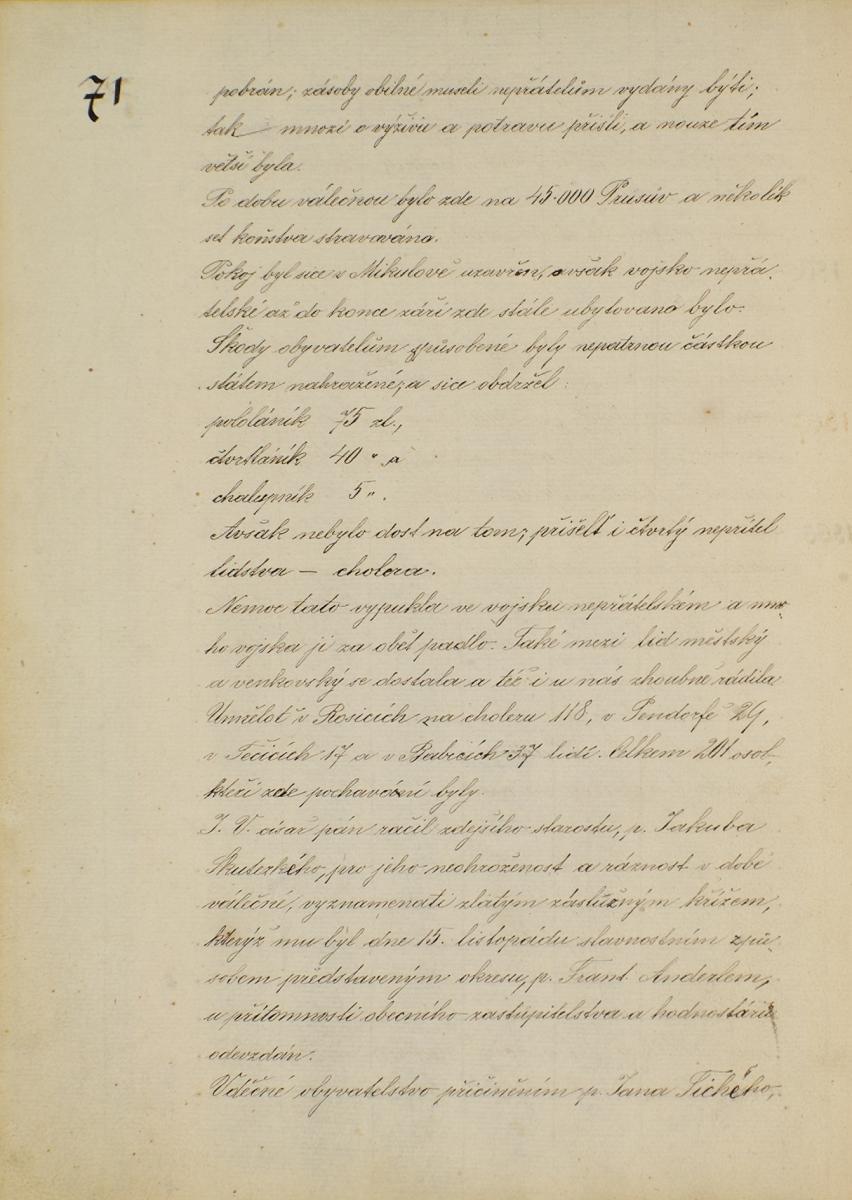 71
pobrán; zásoby obilné museli nepřátelům vydány býti;
tak mnozí o výživu a potravu přišli, a nouze tím
větší byla.
Po dobu válečnou bylo zde na 45.000 Prusův a několik
set koňstva stravováno.
Pokoj byl sice v Mikulově uzavřen, avšak vojsko nepřá-
telské až do konce září zde stále ubytováno bylo.
Škody obyvatelům způsobené byly nepatrnou částkou
státem nahražené, a sice obdržel:
pololáník 75 zl.,
čtvrtláník 40 " a
chalupník 5 ".
Avšak nebylo dost na tom; přišelť i čtvrtý nepřítel
lidstva — cholera.
Nemoc tato vypukla ve vojsku nepřátelském a mno-
ho vojska jí za oběť padlo. Také mezi lid městský
a venkovský se dostala a též i u nás zhoubně řádila.
Umřelot' v Rosicích na choleru 118, v Pendorfě 29,
v Tečicích 17 a v Babicích 37 lidí. Celkem 201 osob,
kteří zde pochováni byly.
J. V. císař pán ráčil zdejšího starostu, p. Jakuba
Skutezkého, pro jeho neohroženost a ráznost v době
válečné, vyznamenati zlatým záslužným křížem,
kterýž mu byl dne 15. listopádu slavnostním způ-
sobem představeným okresu, p. Frant. Anderlem,
u přítomnosti obecního zastupitelstva a hodnostářů
odevzdán.
Vděčné obyvatelstvo přičiněním p. Jana Tichého,